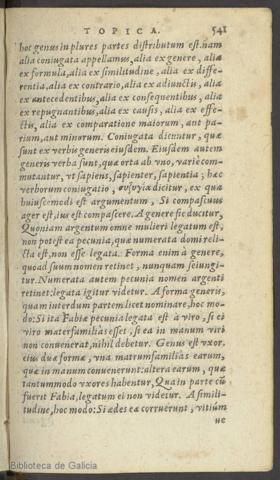 TOPICA. 541
hoc genus in plures partes distributum est. nam
alia coniugata appellamus, alia ex genere, alia
ex formula, alia ex similitudine, alia ex diffe-
rentia, alia ex contrario, alia ex adiunctis, alia
ex antecedentibus, alia ex consequentibus, alia
ex repugnantibus, alia ex causis, alia ex effe-
ctis, alia ex comparatione maiorum, aut pa-
rium, aut minorum. Coniugata dicuntur, quæ
sunt ex verbis generis eiusdem. Eiusdem autem
generis verba sunt, quæ orta ab vno, variè com-
mutantur, vt sapiens, sapienter, sapientia; hæc
verborum coniugatio, συζυγία dicitur, ex qua
huiuscemodi est argumentum, Si compascuus
ager est, ius est compascere. A genere sic ducitur,
Quoniam argentum omne mulieri legatum est,
non potest ea pecunia, quæ numerata domi reli-
cta est, non esse legata. Forma enim à genere,
quoad suum nomen retinet, nunquam seiungi-
tur. Numerata autem pecunia nomen argenti
retinet: legata igitur videtur. A forma generis,
quam interdum partem licet nominare, hoc mo-
do: Si ita Fabiæ pecunia legata est à viro, si ei
viro materfamiliàs esset, si ea in manum viri
non conuenerat, nihil debetur. Genus est vxor.
eius duæ formæ, vna matrumfamiliàs earum,
quæ in manum conuenerunt: altera earum, quæ
tantummodo vxores habentur, Qua in parte cū
fuerit Fabia, legatum ei non videtur. A simili-
tudine, hoc modo: Si ædes eæ corruerunt, vitiúm
ue
Biblioteca de Galicia